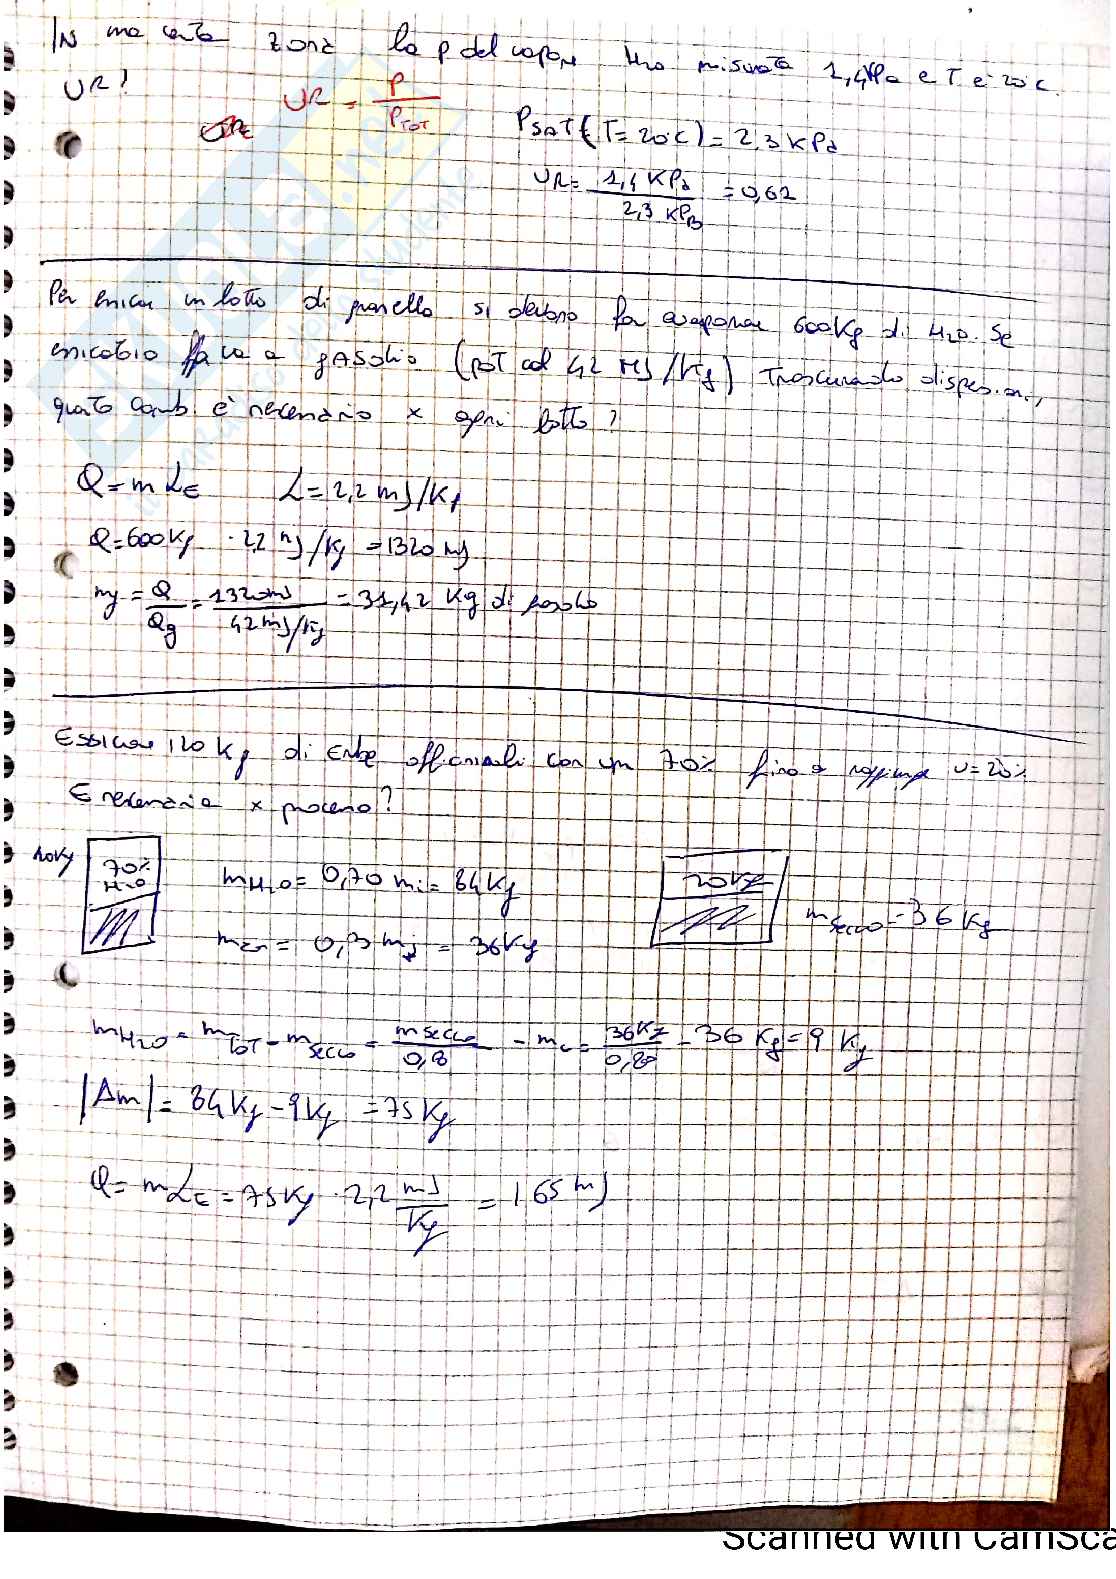 IN una certa zona la p del vapore H2O misurata 1,4 kPa e T è 20°C.
UR?
UR = P / PTOT
PSAT (T= 20°C) = 2,3 KPa
UR = 1,4 KPa / 2,3 KPa = 0,62
Per essicare un lotto di granella si devono far evaporare 600Kg di H2O. Se
essicatoio va a gASOlio (pot cal 42 MJ/Kg) Trascurando dispersioni,
quanto comb. è necessario x ogni lotto?
Q = m LE L = 2,2 mJ/Kg
Q = 600Kg · 2,2 mJ/Kg = 1320 mJ
mg = Q / Qg = 1320mJ / 42 mJ/Kg = 31,42 Kg di gasolio
Essicare 120 Kg di Erbe officinali con un 70% fino a raggiungere U=20%
E necessaria x processo?
70% H2O
mH2O = 0,70 mi = 84Kg
= 0,3 mi = 36Kg
msecco = 36 Kg
mH2O = mTOT - mSECCO = m secco / 0,8 - = 36Kg / 0,80 - 36 Kg = 9 Kg
|Δm| = 84Kg - 9Kg = 75 Kg
Q = m LE = 75Kg · 2,2 mJ / Kg = 165 mJ
Scanned with CamSca